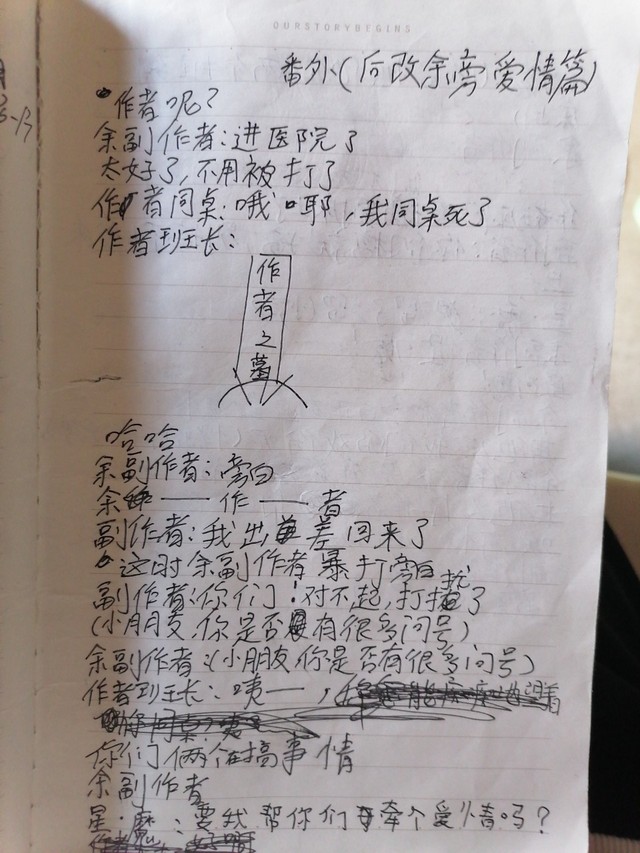 OURSTORYBEGINS
番外(后改余旁爱情篇)
作者呢?
余副作者:进医院了
太好了,不用被打了
作者同桌:哦耶,我同桌死了
作者班长:
作者之墓
哈哈
余副作者:旁白
余——作——者
副作者:我出差回来了
这时余副作者暴打旁白
副作者:你们!对不起,打扰了
(小朋友,你是否有很多问号)
余副作者:(小朋友,你是否有很多问号)
作者班长:咦——,
你们俩个在搞事情
余副作者
星·魔:要我帮你们牵个爱情吗?